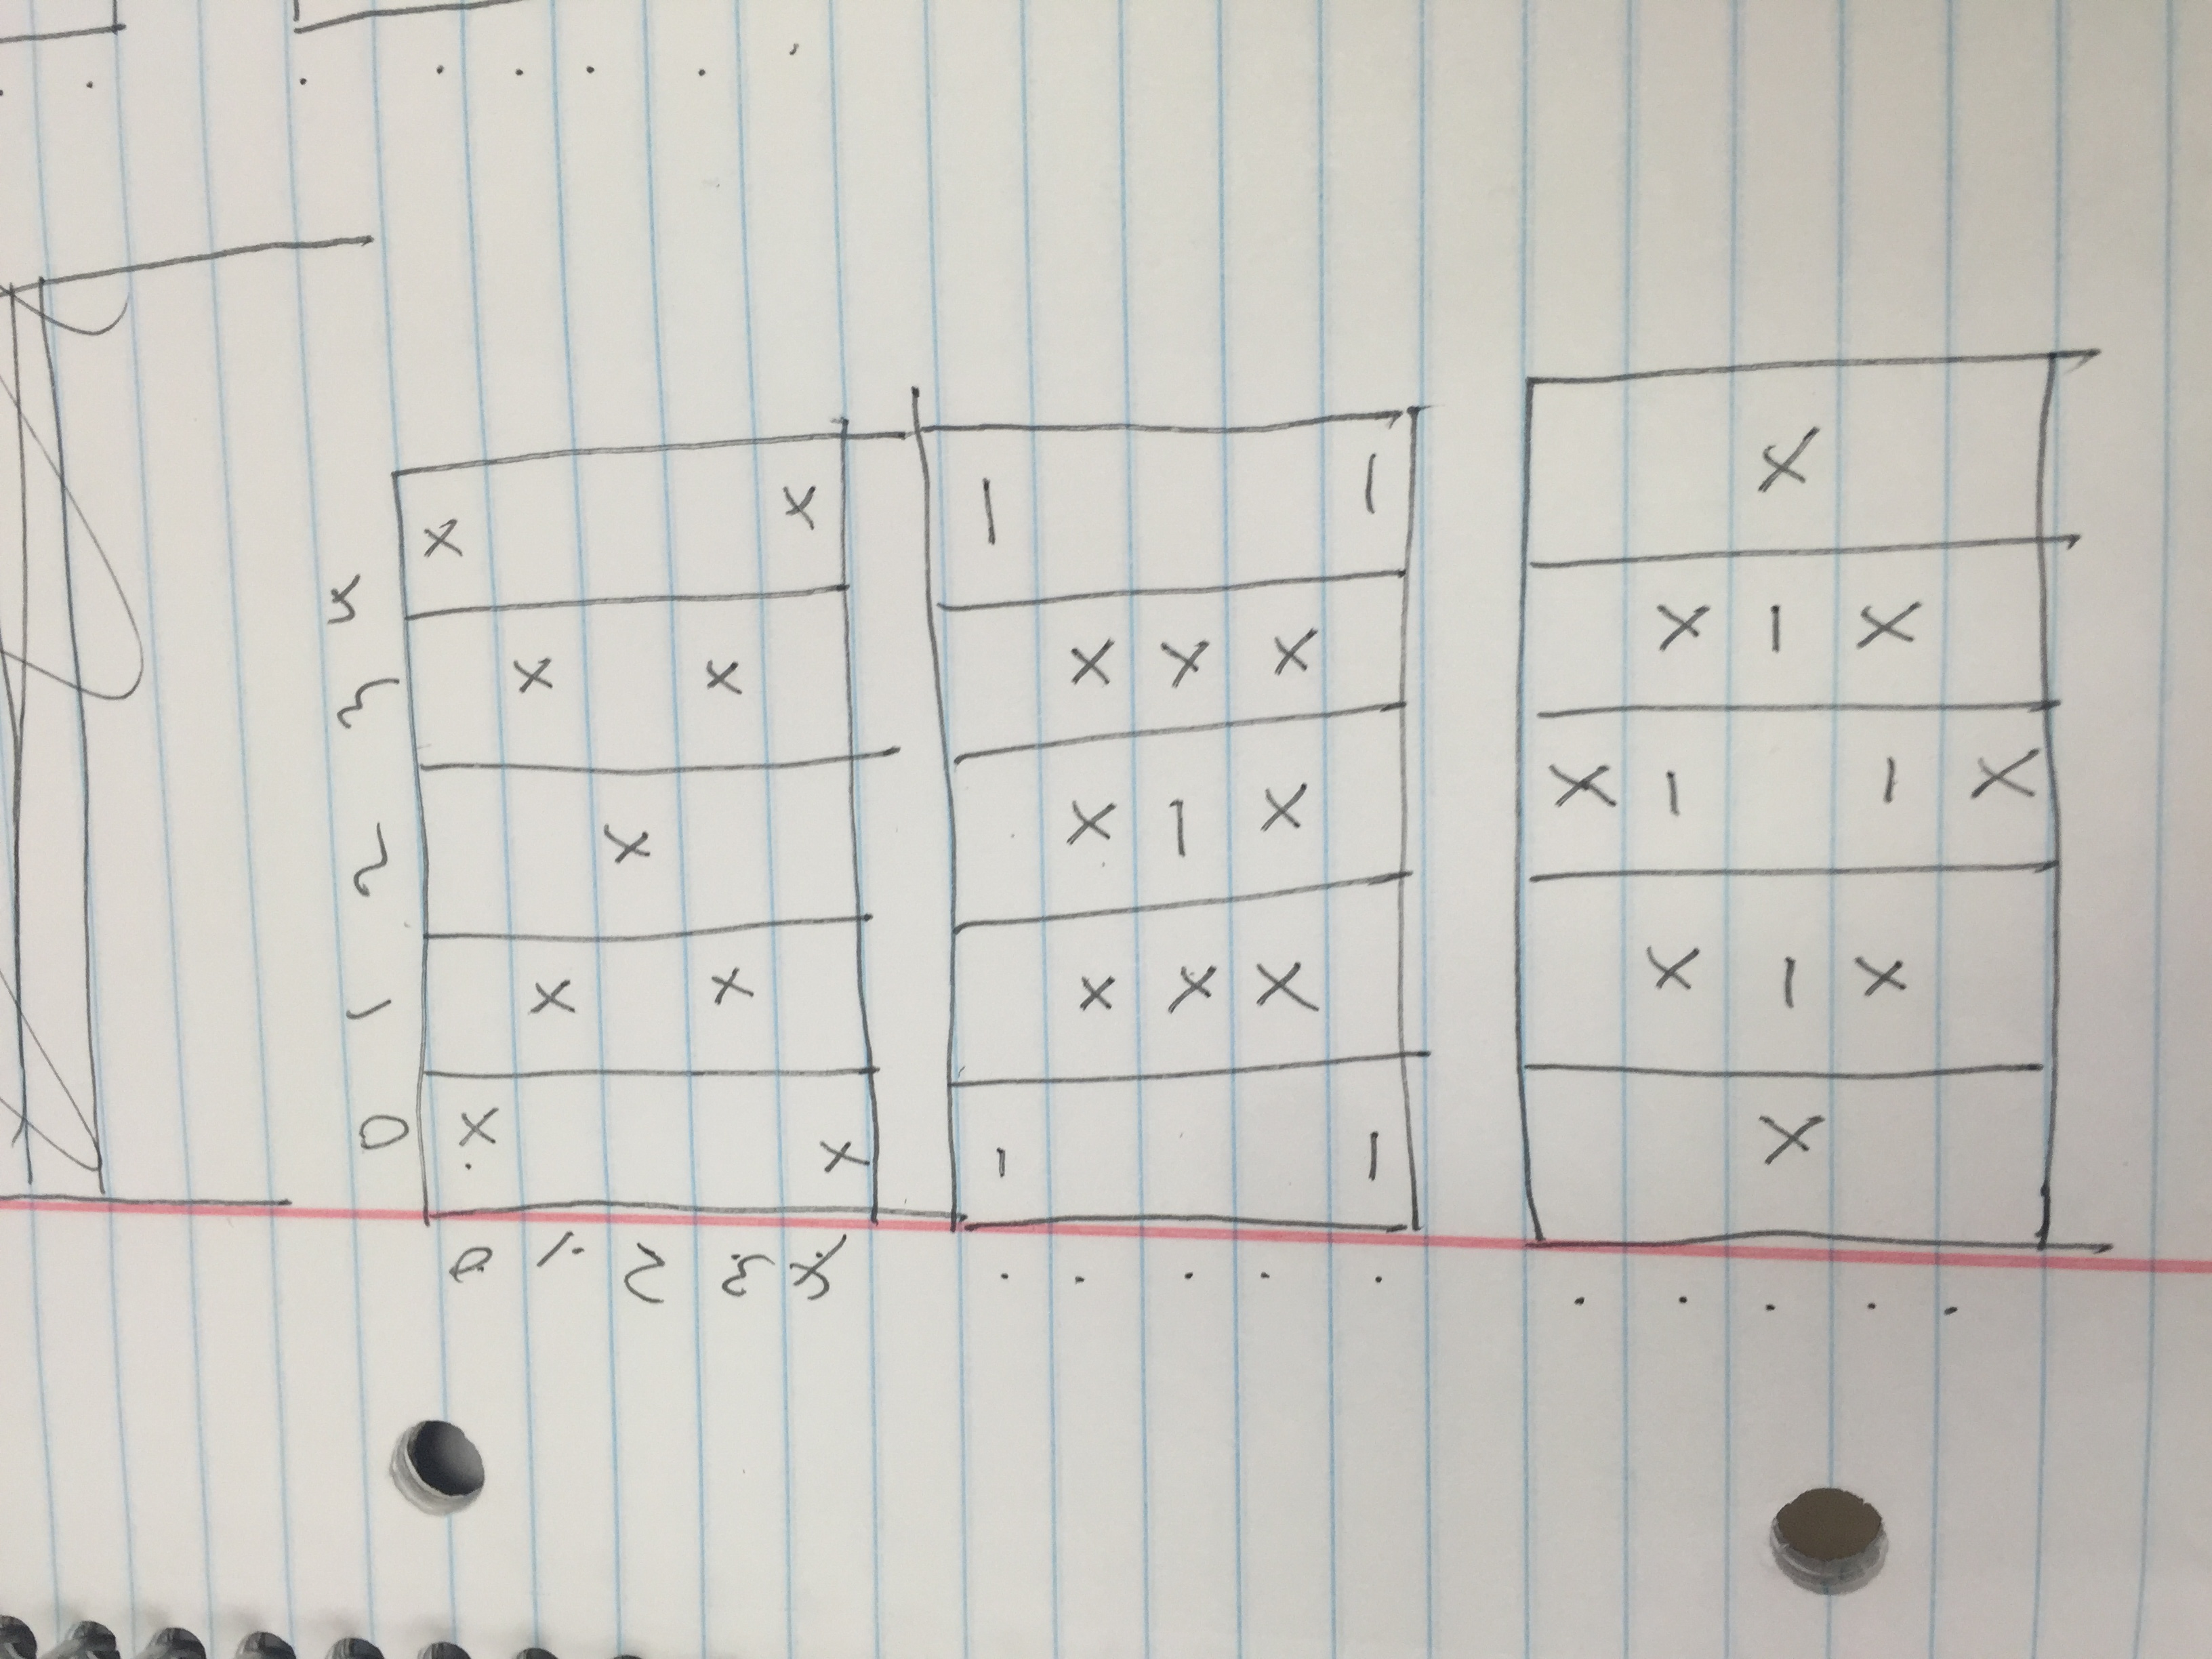 0 1 2 3 4
0 X X
1 X X
2 X
3 X X
4 X X
- -
X X X
X - X
X X X
- -
X
X - X
X - - X
X - X
X